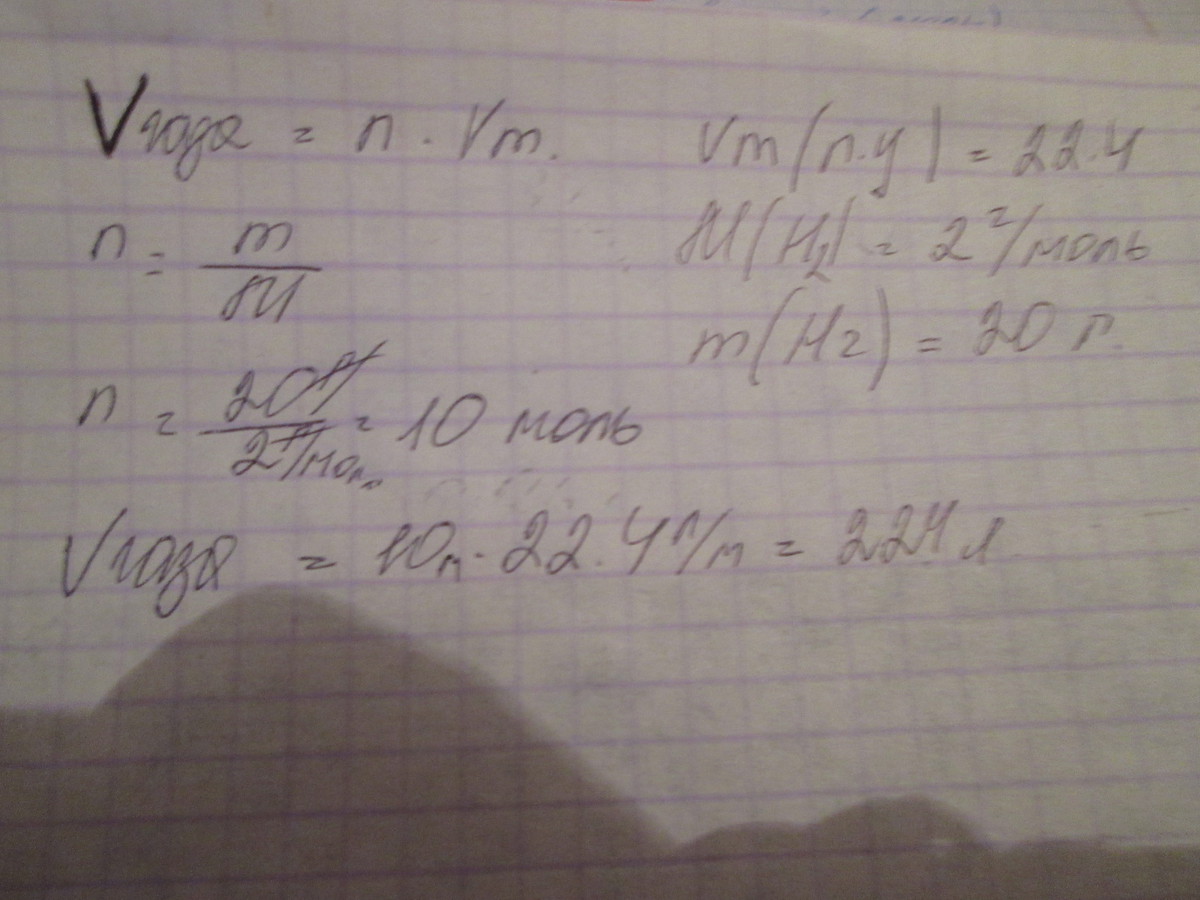 Vгаза = n · Vm.
n = m / M
n = 20г / 2г/моль = 10 моль
Vгаза = 10м · 22.4л/м = 224 л
Vm(н.у) = 22.4
M(H2) = 2 г/моль
m(H2) = 20 г.